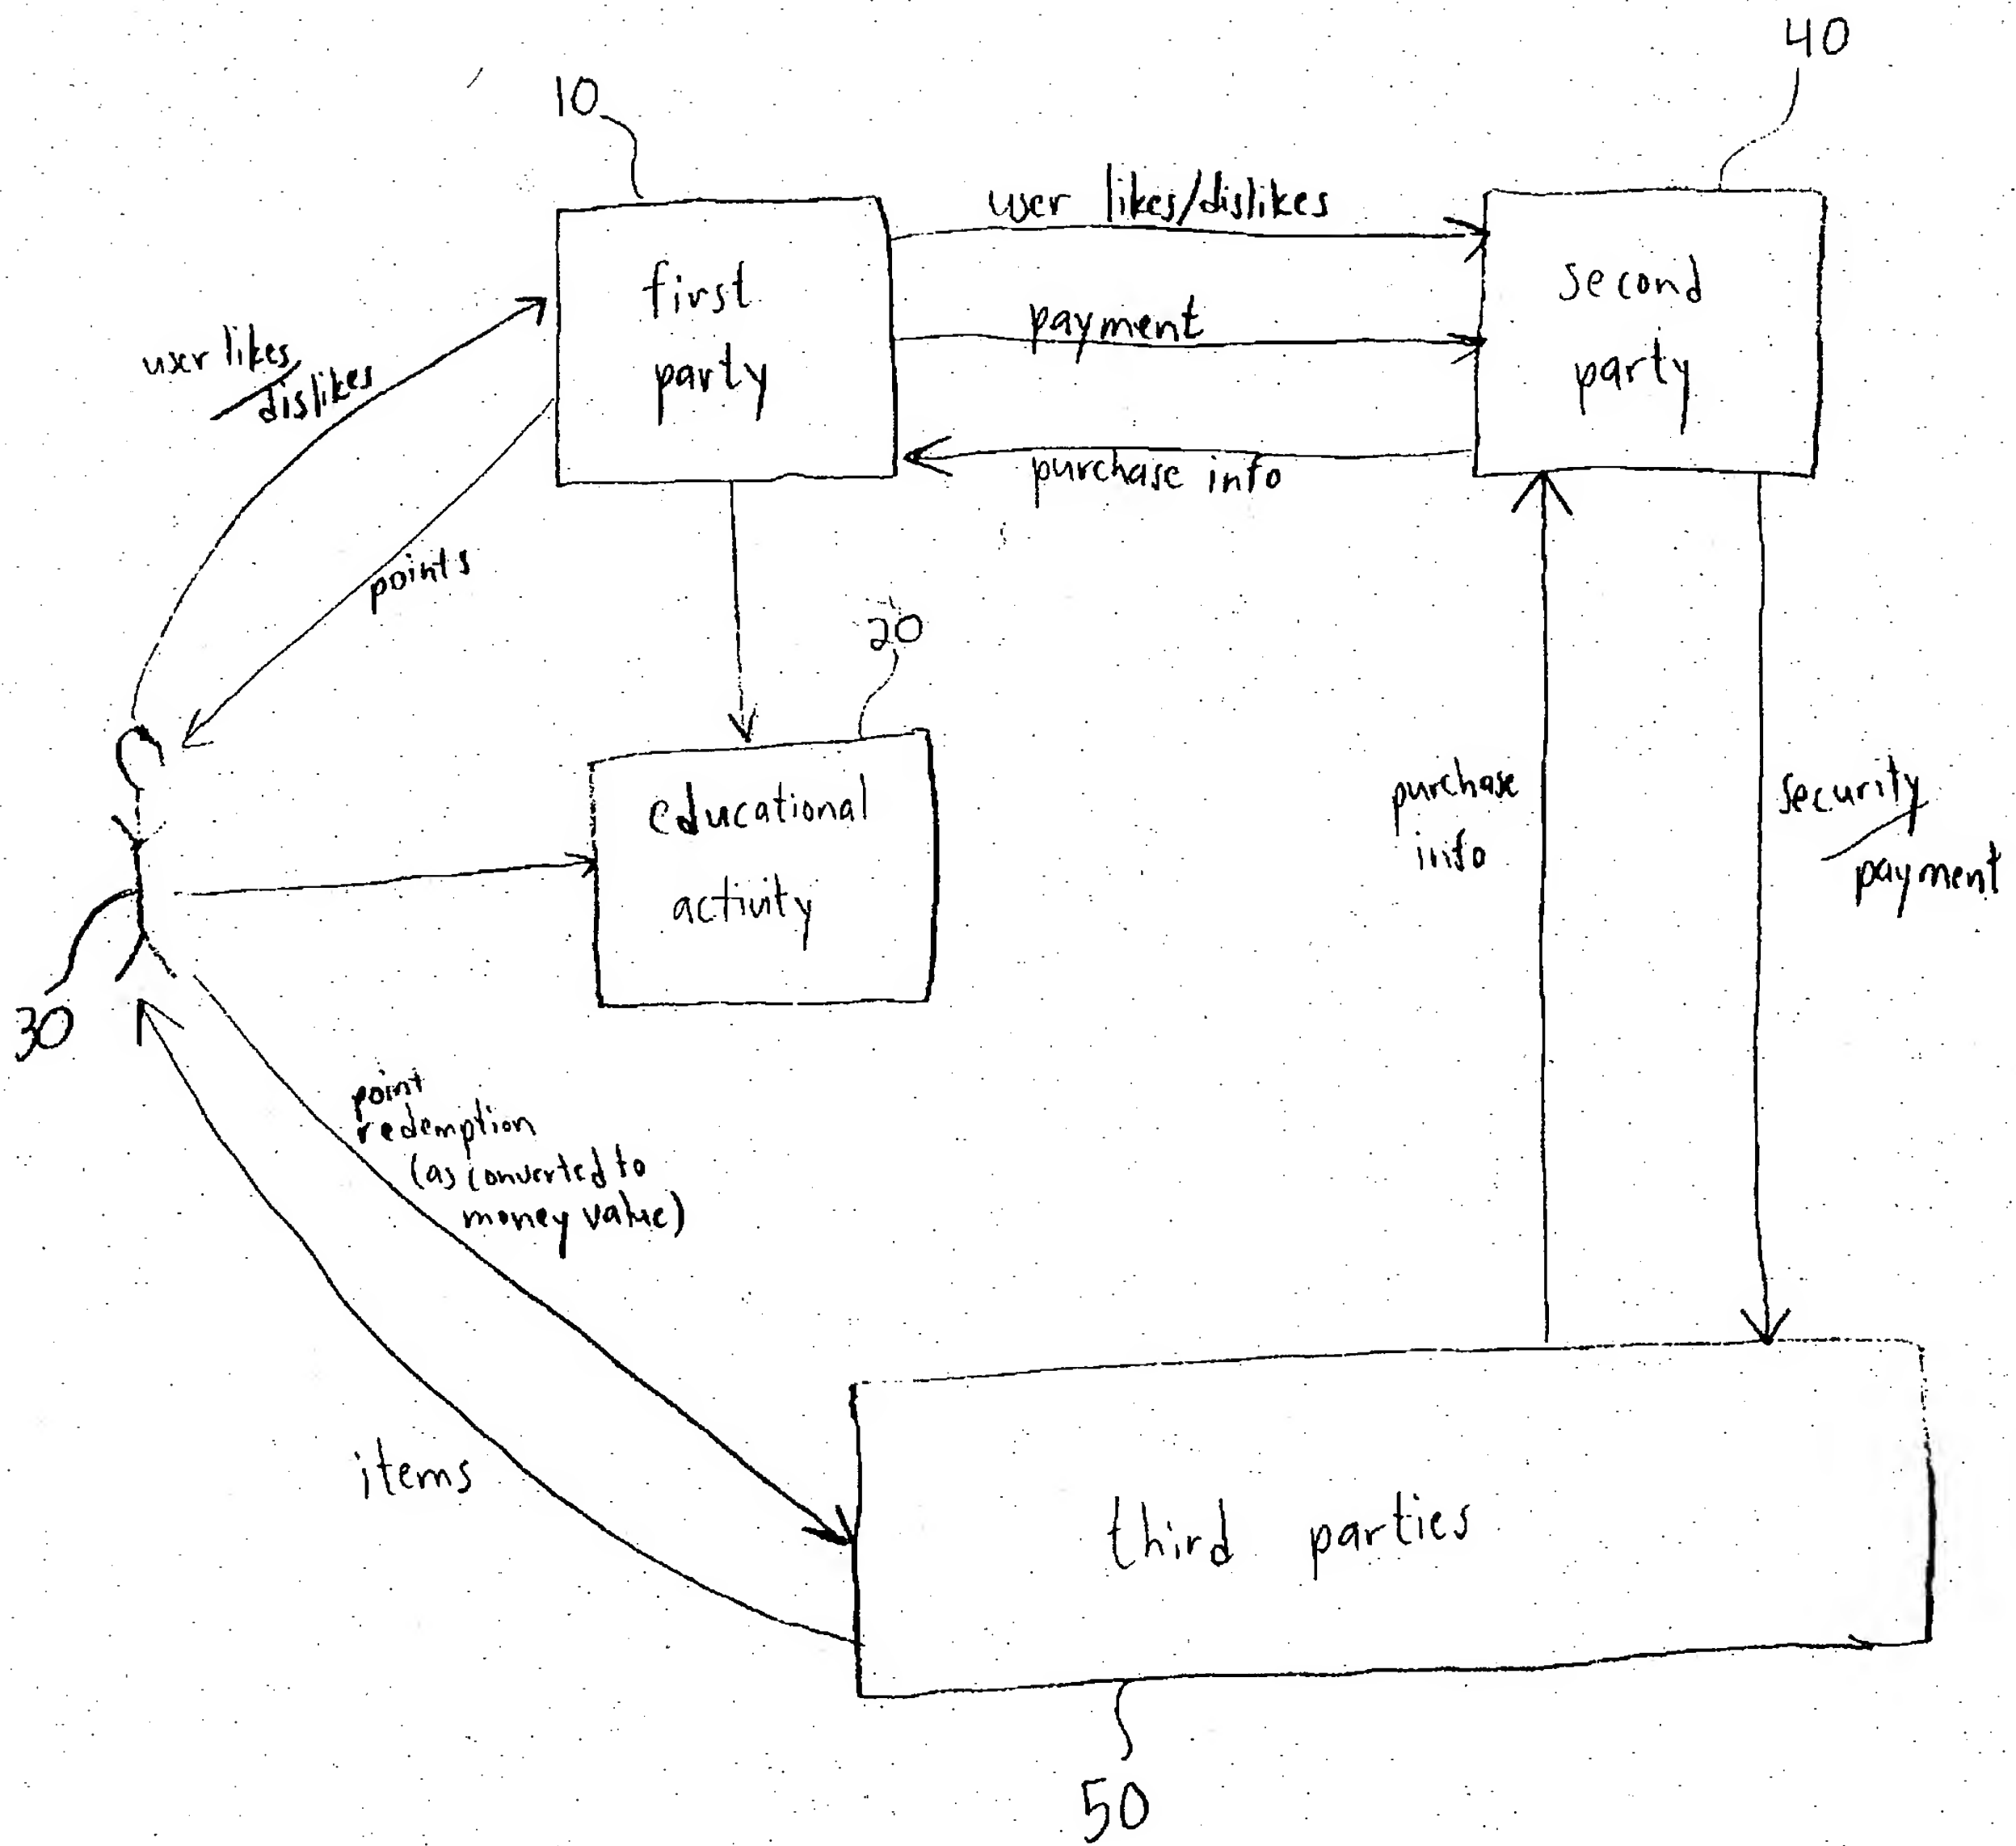 40
10
user likes/dislikes
first
party
second
party
payment
user likes
/dislikes
purchase info
points
20
educational
activity
purchase
info
security
/payment
30
point
redemption
(as converted to
money value)
items
third parties
50